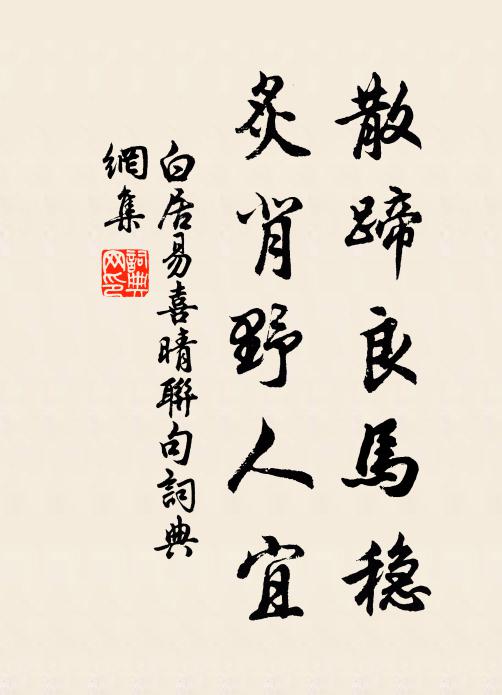 散蹄良馬穩
炙背野人宜
白居易喜晴聯句詞典
網集
詞典
网印